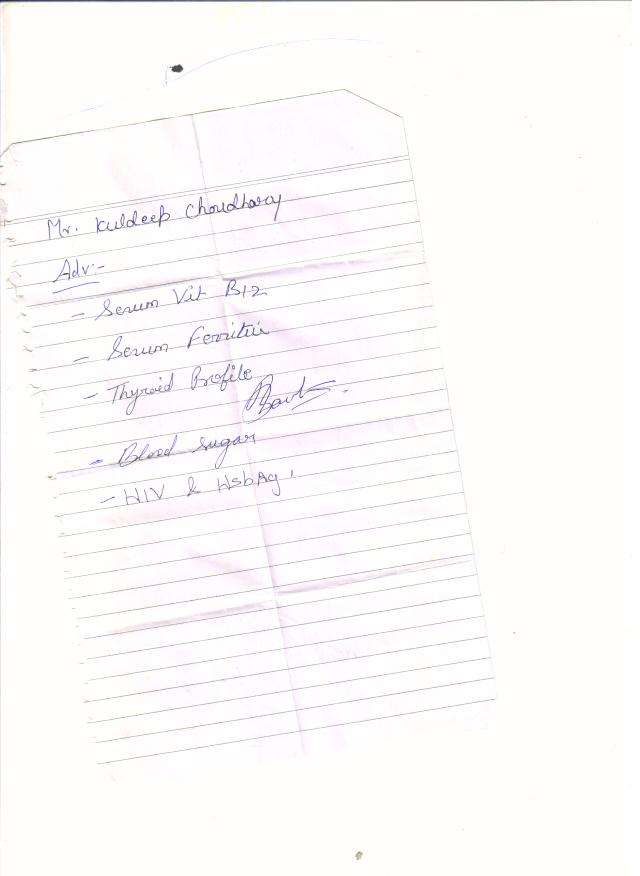 Mr. Kuldeep Choudhary
Adv:-
- Serum Vit B12
- Serum Ferritin
- Thyroid Profile
- Blood sugar
- HIV & HsbAg.